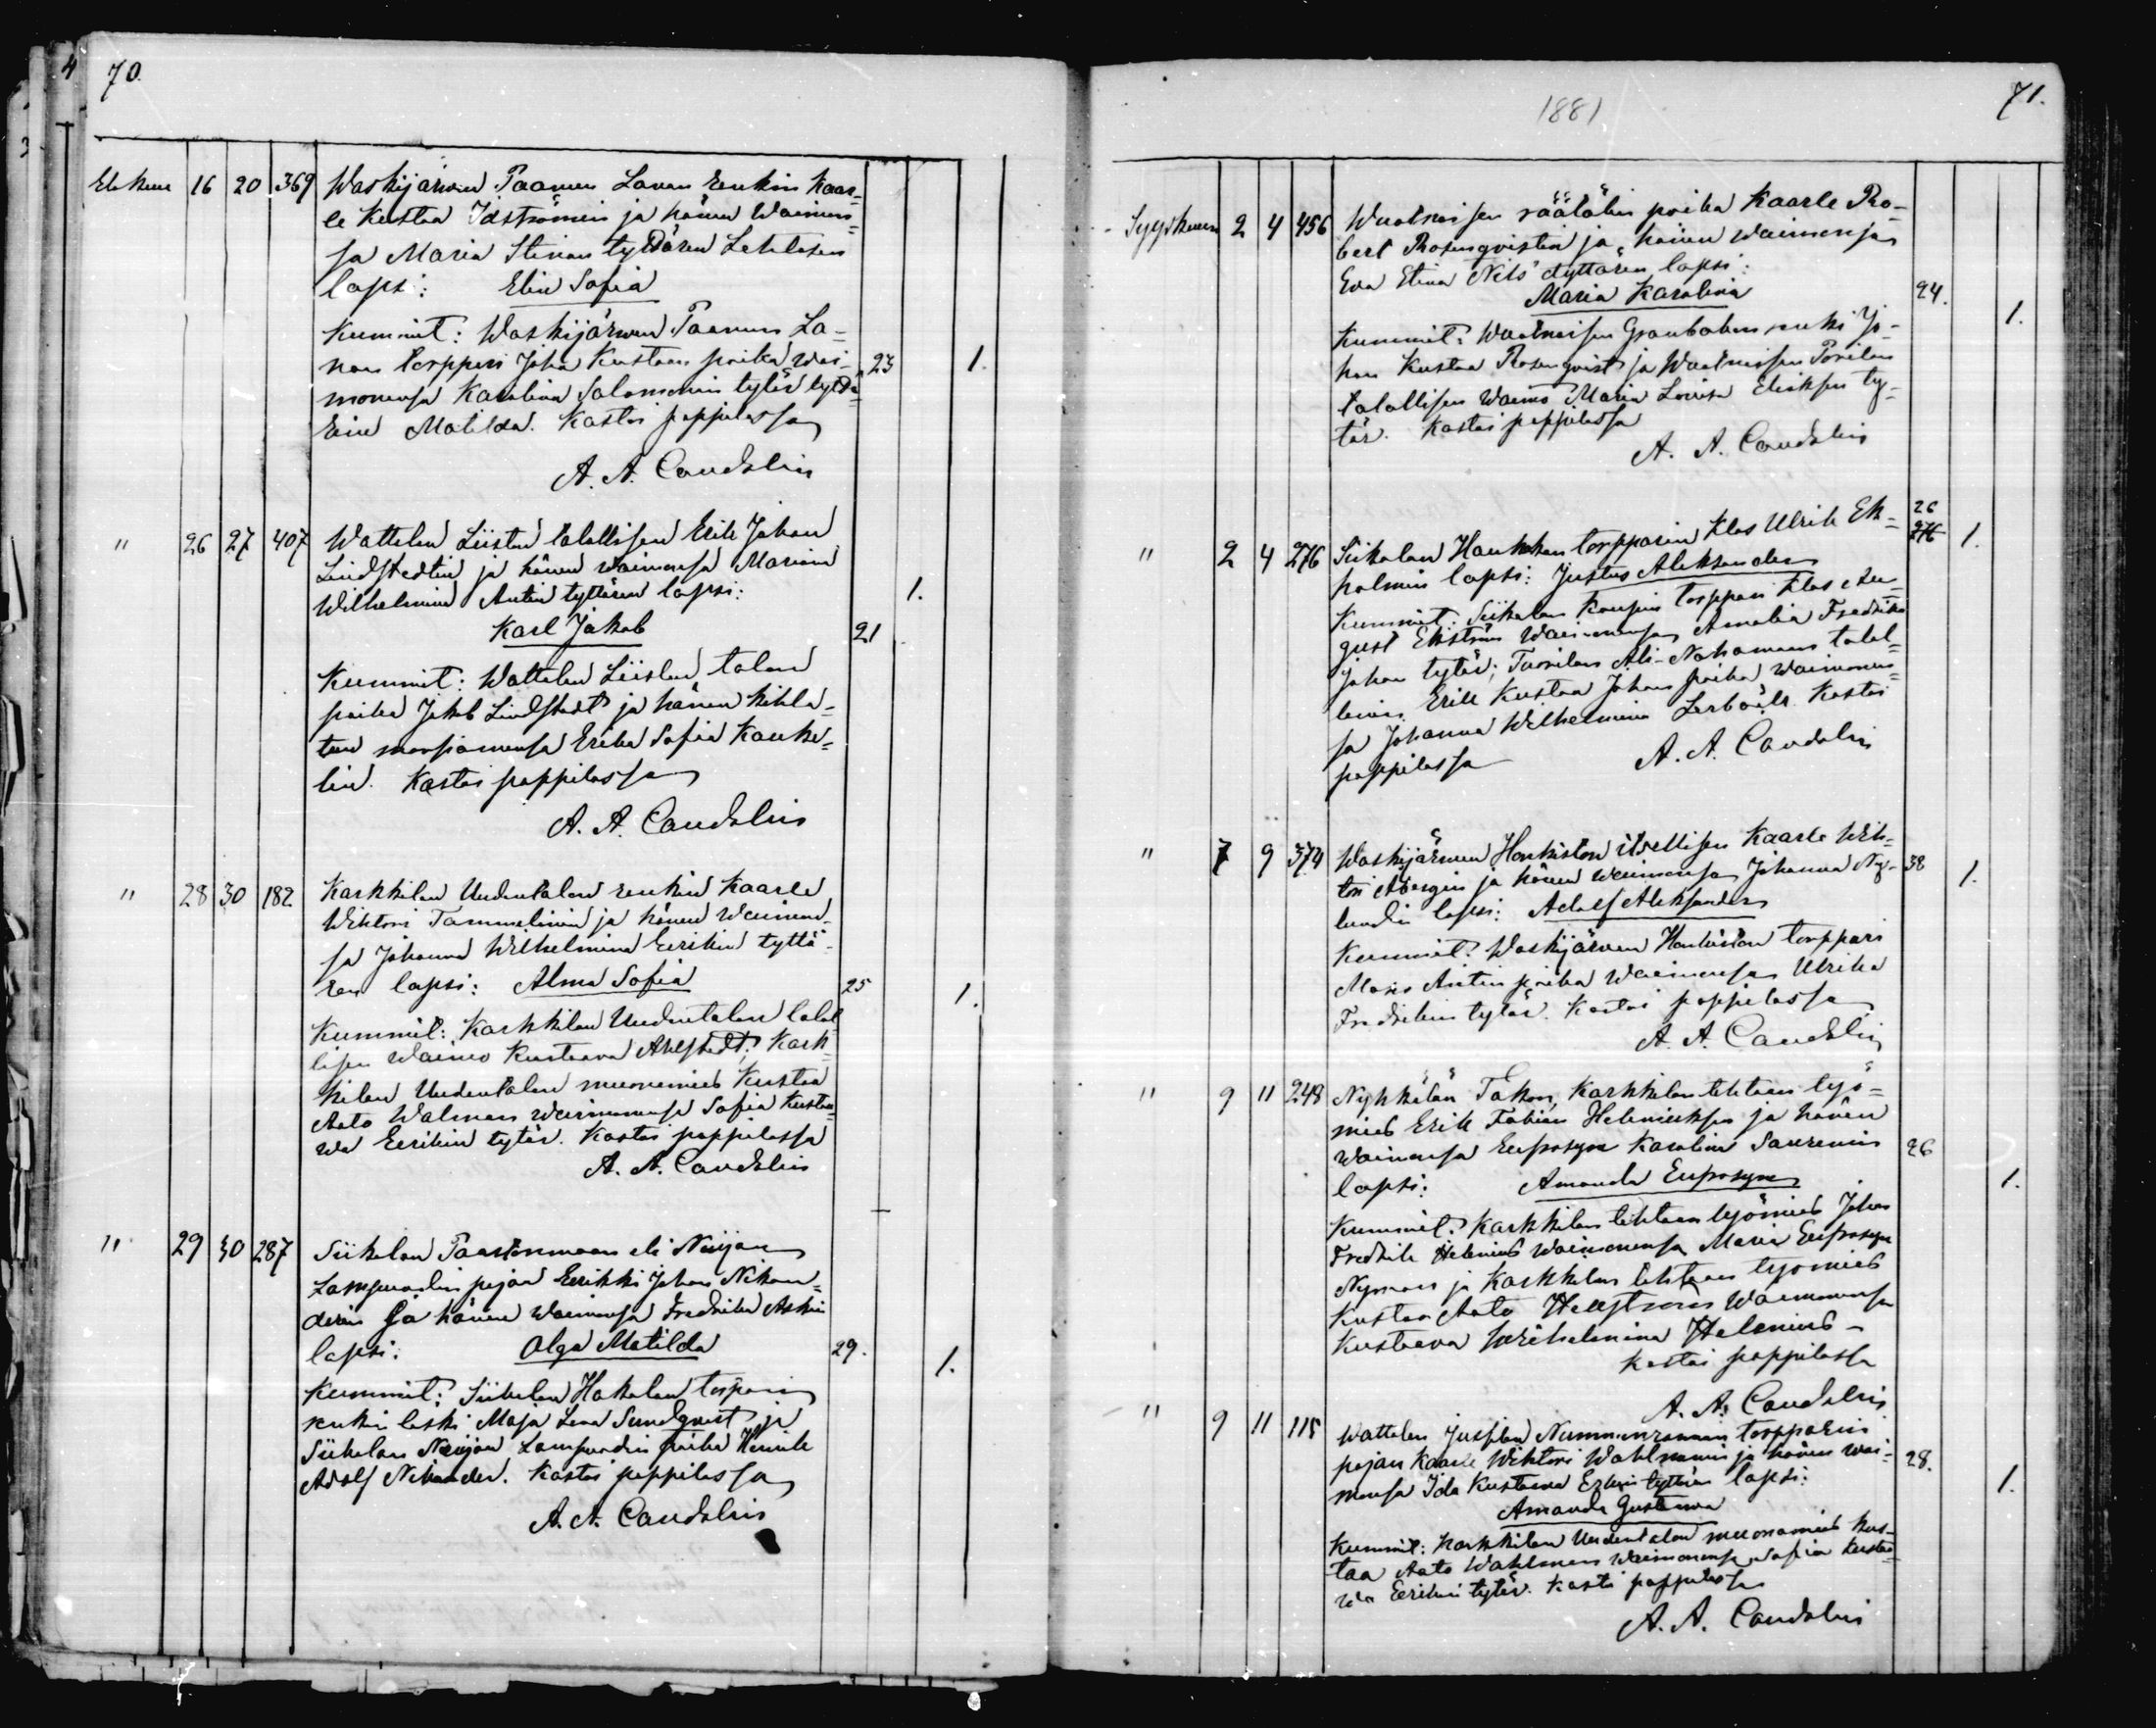 70.
Elokuu 16 20 369 Waskijärwen Paanun Lanan renkin Kaar=
le Kustaa Idströmin ja hänen Waimon=
sa Maria Stinan tyttären Lehtosen
lapsi: Elin Sofia
Kummit: Waskijärwen Paanun La=
nan torppari Juha Kustaan poika wai= 23 1.
monensa Karolina Salomonin tytär
Matilda. Kastoi pappilassa
A. A. Candolin
" 26 27 407 Wattelan Liistan talollisen Erik Johan
Lindstedtin ja hänen waimonsa Marian
Wilhelmina Antin tyttären lapsi: 1.
Karl Jakob 21
Kummit: Wattelan Liistan talon
poika Jakob Lindstedt ja hänen kihla=
tun morsiamensa Erika Sofia Kauke=
lin. Kastoi pappilassa
A. A. Candolin
" 28 30 182 Karkkilan Uudentalon renkin Kaarle
Wihtori Tammelinin ja hänen Waimon=
sa Johanna Wilhelmina Eerikin tyttä=
ren lapsi: Alma Sofia 25 1.
Kummit: Karkkilan Uudentalon talol
lisen Waimo Kustaava Ahlstedt; Kark=
kilan Uudentalon muonamies Kustaa
Aato Walman Waimonensa Sofia Kustaa=
wa Eerikin tytär. Kastoi pappilassa
A. A. Candolin
" 29 30 287 Siikalan Paastonmaan eli Neijan
Lampuodin pojan Eerikki Johan Nikan=
derin ja hänen Waimonsa Fredrika Askin
lapsi: Olga Matilda 29. 1.
Kummit: Siikalan Hakalan torparin
renkin leski Maja Lena Sundqvist ja
Siikalan Neijan Lampuodin poika Henrik
Adolf Nikander. Kastoi pappilassa
A. A. Candolin
1881
71.
Syyskuu 2 4 456 räätälin poika Kaarle Ro=
bert Rosenqvistin ja hänen waimonsa
Eva Stina Nils tyttären lapsi:
Maria Karolina 24. 1.
Kummit: renki Jo=
han Kustaa Rosenqvist ja
talollisen Waimo Maria Lovisa Erikson ty=
tär. Kastoi pappilassa
A. A. Candolin
" 2 4 276 Siikalan Haukkan torpparin Klas Ulrik Ek= 26 276 1.
holmin lapsi: Justus Aleksander
Kummit: Siikalan torppari Klas Au=
gust Ekström Waimonensa Amalia Fredrika
Johan tytär; Tuorilan Ali-Nahamaan talol=
linen Erik Kustaa Johan poika waimonen=
sa Johanna Wilhelmina Kastoi
pappilassa A. A. Candolin
" 7 9 374 Waskijärwen Honkiston itsellisen Kaarle Wih=
tori Åbergin ja hänen waimonsa Johanna Ny= 38 1.
lundin lapsi: Adolf Aleksander
Kummit: Waskijärwen Honkiston torppari
Antin poika Waimonensa Ulrika
Fredrikin tytär. Kastoi pappilassa
A. A. Candolin
" 9 11 248 Nyhkälän Takon, Karkkilan tehtaan työ=
mies Erik Fabian Heleniuksen ja hänen
Waimonsa Euprosyne Karolina Saurenin 26
lapsi: Amanda Euprosyne 1.
Kummit: Karkkilan tehtaan työmies Johan
Fredrik Helenius Waimonensa Maria Euprosyne
Nyman ja Karkkilan tehtaan työmies
Kustaa Aato Hellström Waimonensa
Kustaava Wilhelmina Helenius
Kastoi pappilassa
A. A. Candolin
" 9 11 118 Wattelan Jussilan Nummenrannan torpparin
pojan Kaarle Wihtori Wahlmanin ja hänen wai= 28.
monsa Ida Kustaava Erikin tyttären lapsi: 1.
Amanda Gustaava
Kummit: Karkkilan Uudentalon muonamies Kus=
taa Aato Wahlman Waimonensa Sofia Kustaa=
wa Eerikin tytär. Kastoi pappilassa
A. A. Candolin